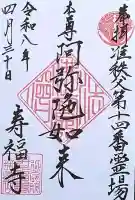 奉拝 准秩父第十四番霊場
本尊 阿弥陀如来
令和八年
四月三十日
寿福寺